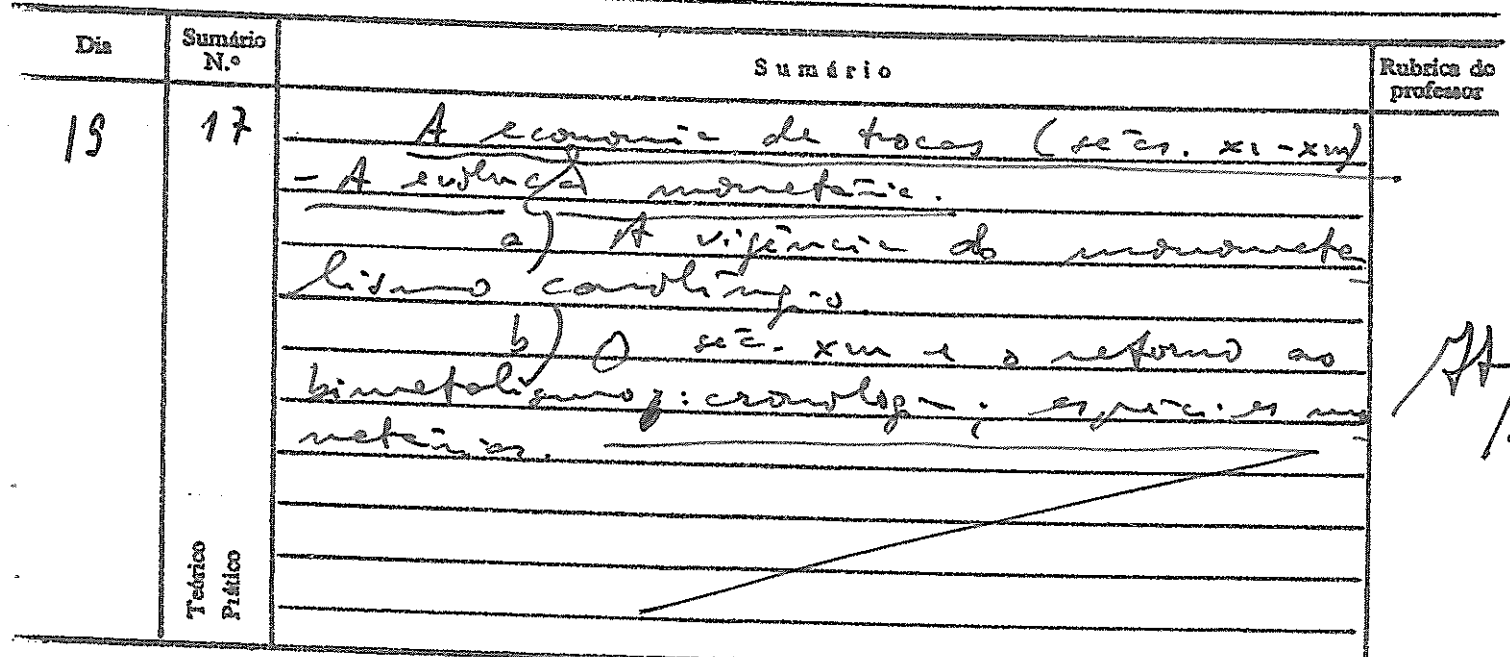 Dia
Sumário N.º
Sumário
Rubrica do professor
19
17
A economia de trocas (sécs. XI-XIII)
- A evolução monetária.
a) A vigência do monometa
lismo carolíngio
b) O séc. XIII e o retorno ao
bimetalismo: cronologia; espécies mo
netárias.
Teórico
Prático